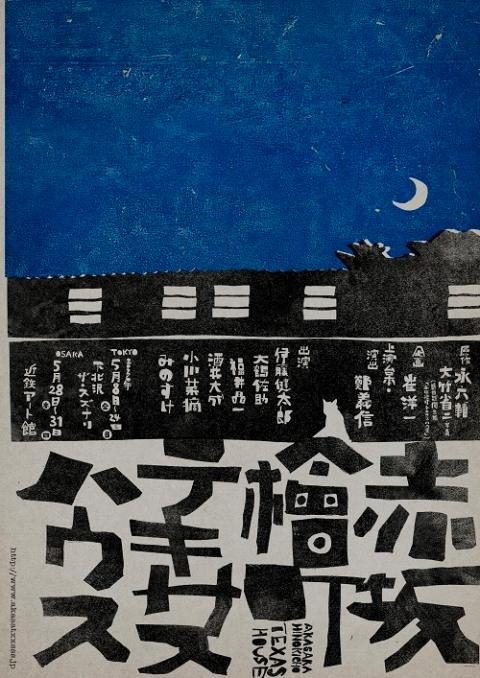 原作 永六輔
大竹省二 写真
企画 崔洋一
上演台本・演出 鄭義信
出演
伊藤健太郎
大鶴佐助
福井晶一
酒井大成
小川菜摘
みのすけ
TOKYO
下北沢
ザ・スズナリ
OSAKA
5月28日~31日
近鉄アート館
赤坂
檜町
テキサス
ハウス
AKASAKA
HINOKICHO
TEXAS
HOUSE